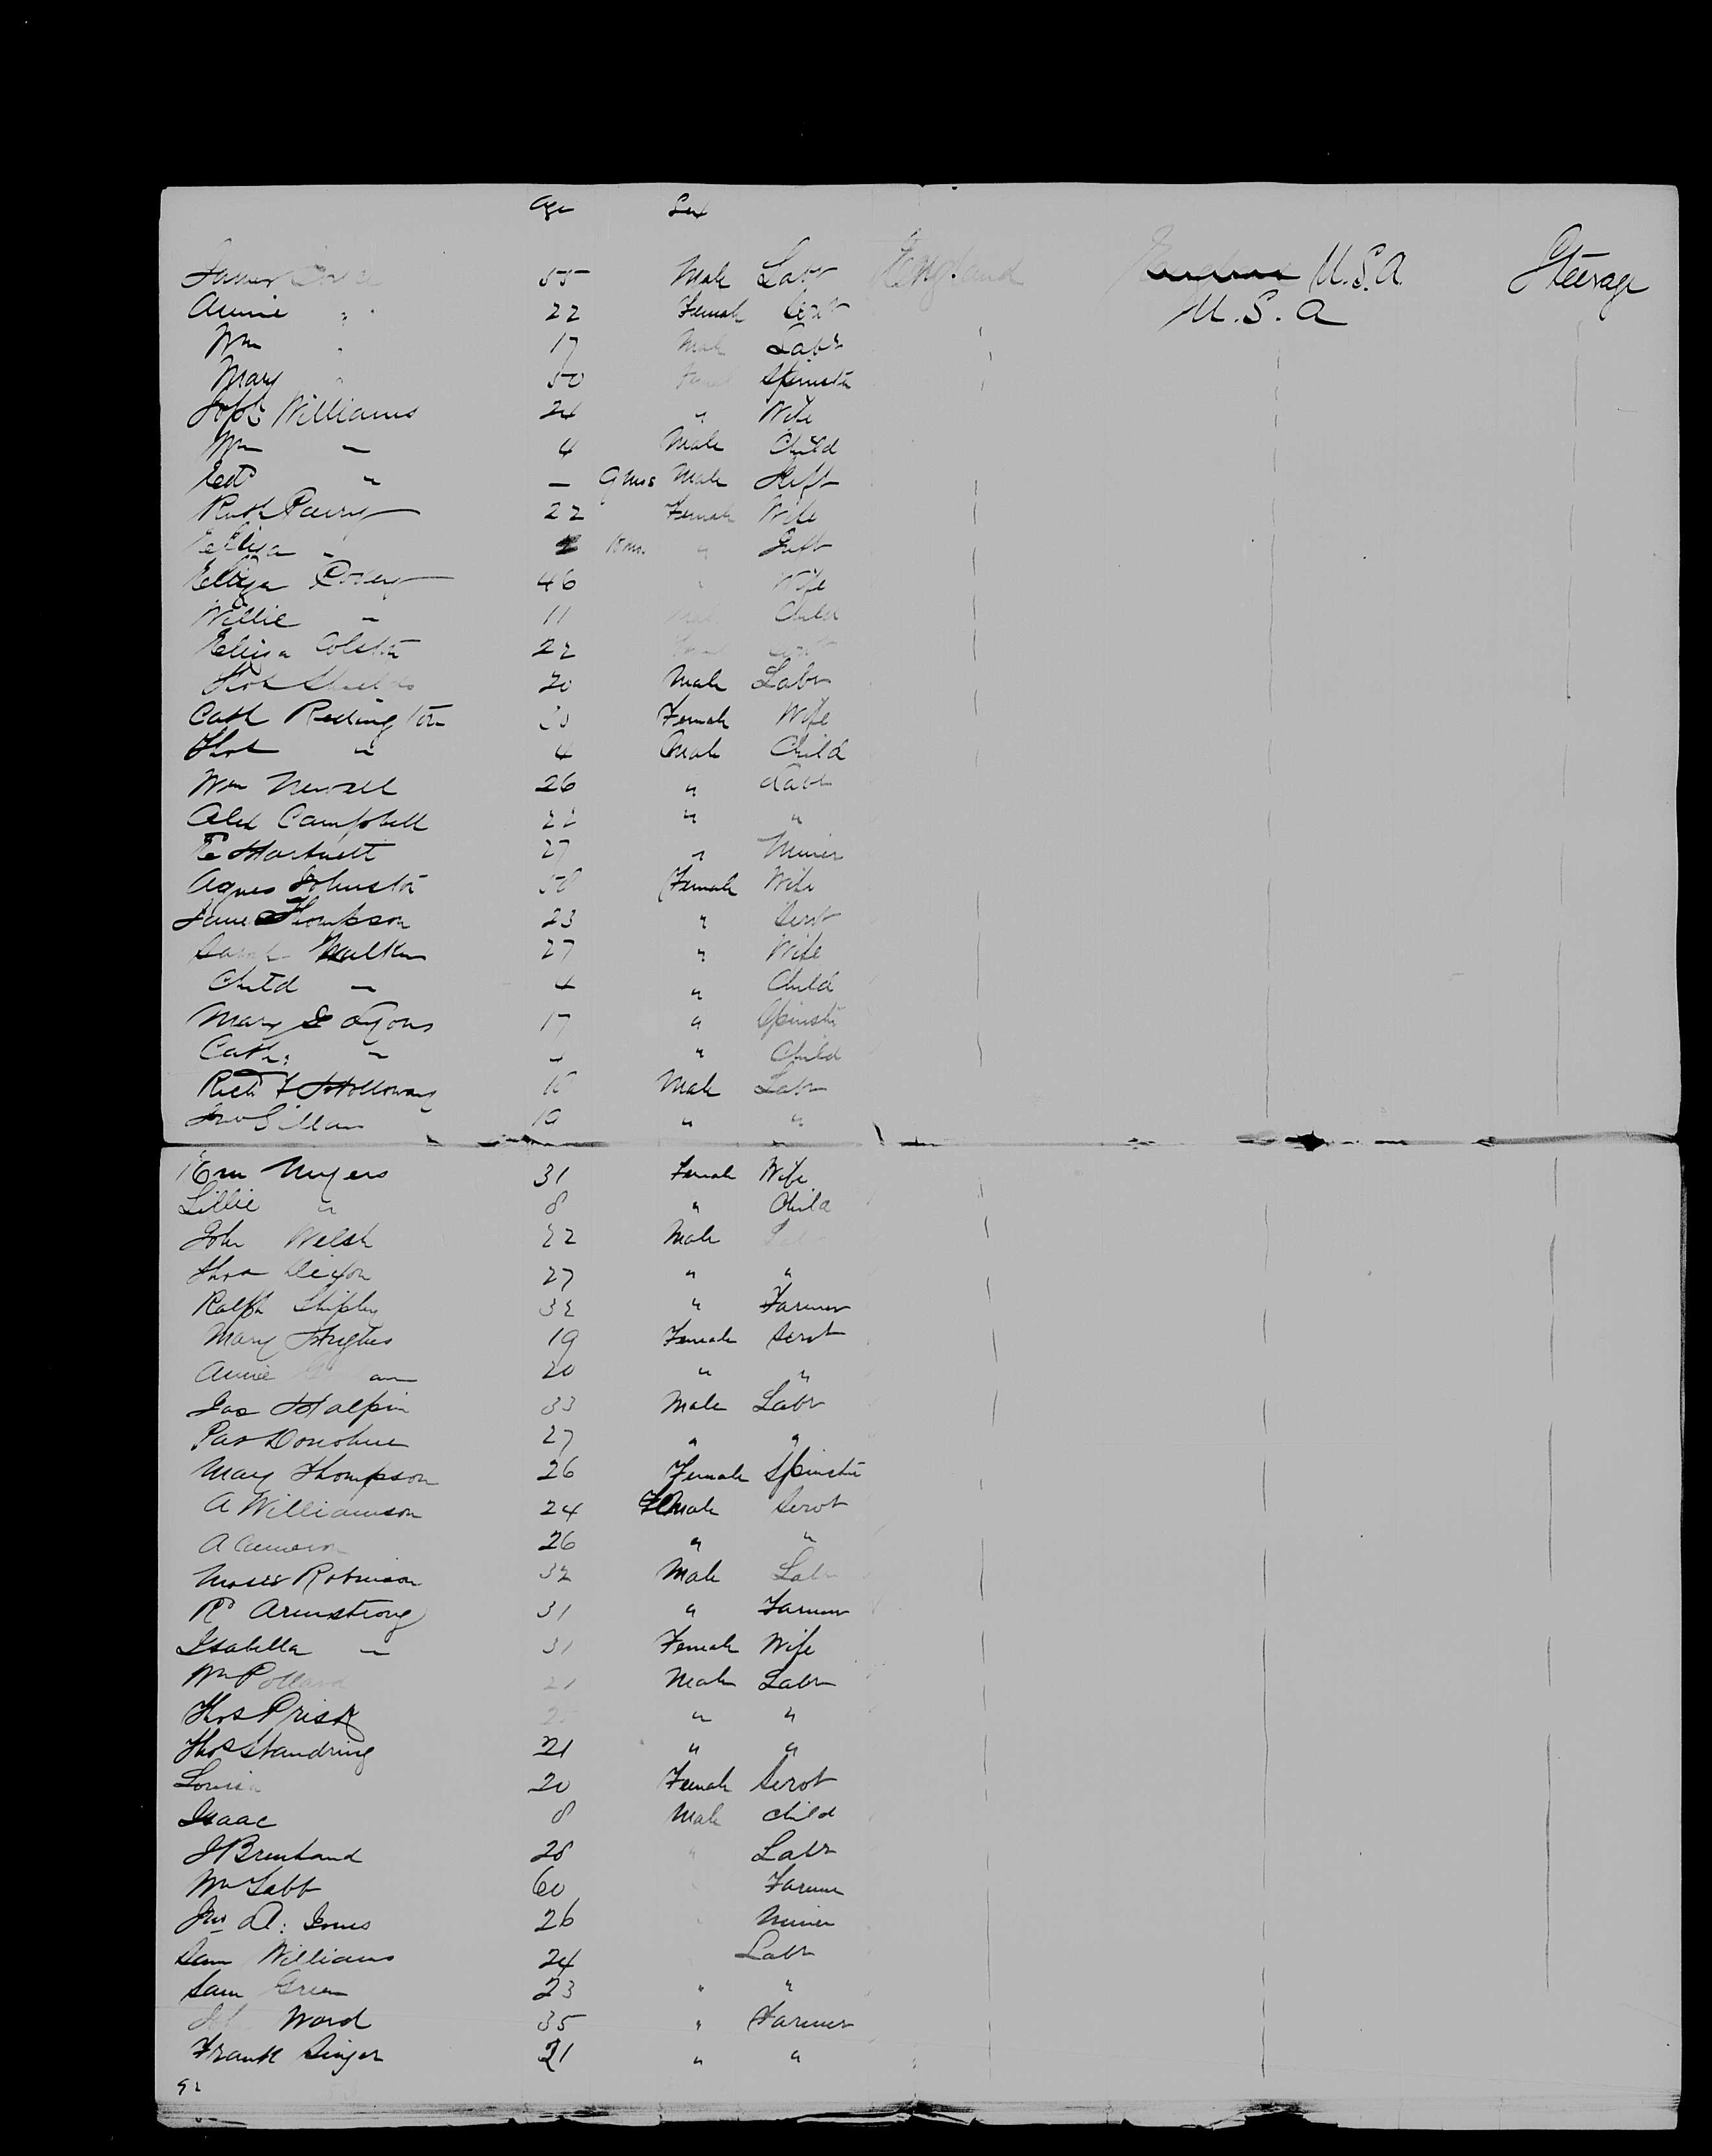 Age Sex
James 55 Male Labr England U.S.A. Steerage
Annie " 22 Female Servt U.S.A
Wm " 17 Male Labr
Mary " 50 Femal Spinstr
Williams 24 " Wife
Wm " 4 Male Child
Edd " — 9 mos Male Inft
Ruth Parry 22 Female Wife
Eliza " 10 mos " Inft
Eliza 46 " Wife
Willie " 11 Male Child
Eliza Colstn 22
Thos Shields 20 Male Labr
Cath Redington Female Wife
Thos " 4 Male Child
Wm Newall 26 " Labr
Alex Campbell 22 " "
E Hartnett 27 " Miner
Agnes Johnstn Female Wife
Jane Thompson 23 " Servt
Sarah Walker 27 " Wife
Child " 4 " Child
Mary Lyons 17 " Spinstr
Cath: " " Child
Richd Holloway Male Labr
Jno Gillan 19 " "
Em Myers 31 Female Wife
Lillie " 8 " Child
John Welsh 22 Male Lab
Thos Dixon 27 " "
Ralph Shipley 32 " Farmer
Mary Hughes 19 Female Servt
Annie 20 " "
Jas Halpin 33 Male Labr
Pat Donohue 27 " "
Mary Thompson 26 Female Spinstr
A Williamson 24 Female Servt
A Cameron 26 " "
Moses Robinson 32 Male Labr
Rd Armstrong 31 " Farmer
Isabella " 31 Female Wife
Wm Pollard 21 Male Labr
Thos Prisk 25 " "
Thos Standring 21 " "
Louisa 20 Female Servt
Isaac 8 Male Child
J Brenhand 28 " Labr
Wm Labb 60 Farmer
Jno A: Jones 26 " Miner
Sam Williams 24 Labr
Sam Green 23 " "
Ward 35 " Farmer
Frank Singer 21 " "
92